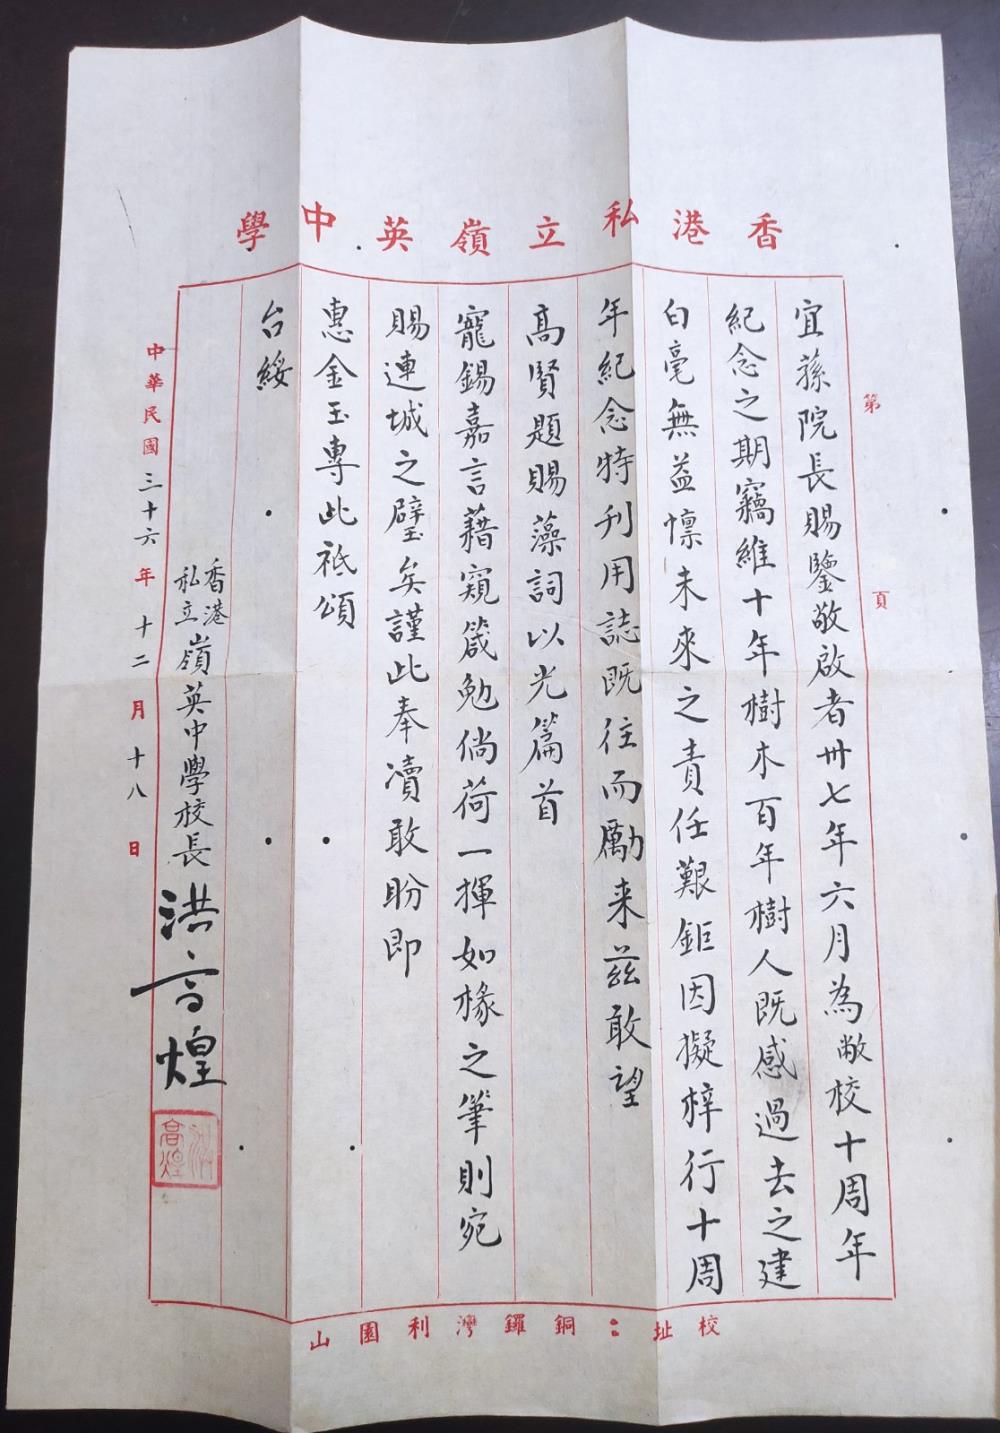 香港私立嶺英中學
第　頁
宜蓀院長賜鑒敬啟者卅七年六月為敝校十周年
紀念之期竊維十年樹木百年樹人既感過去之建
白毫無益懍未來之責任艱鉅因擬梓行十周
年紀念特刊用誌既往而勵来茲敢望
高賢題賜藻詞以光篇首
寵錫嘉言藉窺箴勉倘荷一揮如椽之筆則宛
賜連城之璧矣謹此奉凟敢盼即
惠金玉專此祗頌
台綏
香港私立嶺英中學校長洪高煌
洪高煌
中華民國三十六年十二月十八日
校址：銅鑼灣利園山